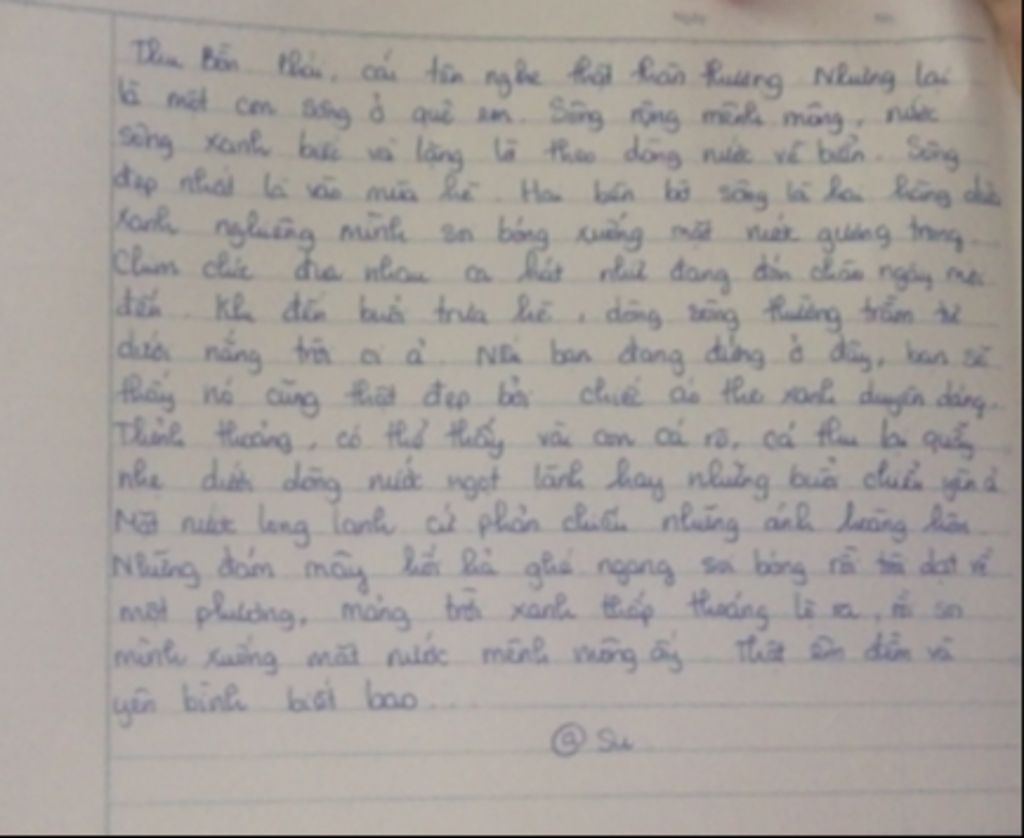 Thu Bồn Phải, cái tên nghe thật thân thương Nhưng lại
là một con sông ở quê em. Sông rộng mênh mông, nước
sông xanh biếc và lặng lẽ theo dòng nước về biển. Sông
đẹp nhất là vào mùa hè. Hai bên bờ sông là hai hàng dừa
xanh nghiêng mình soi bóng xuống mặt nước gương trong...
Chim chóc đua nhau ca hát như đang đón chào ngày mới
đến. Khi đến buổi trưa hè, dòng sông thường trầm tư
dưới nắng trời oi ả. Nếu bạn đang đứng ở đây, bạn sẽ
thấy nó cũng thật đẹp bởi chiếc áo the xanh duyên dáng.
Thỉnh thoảng, có thể thấy vài con cá rô, cá thu lại quẫy
nhẹ dưới dòng nước ngọt lành hay những buổi chiều yên ả
Mặt nước long lanh cứ phản chiếu những ánh hoàng hôn.
Những đám mây hối hả ghé ngang soi bóng rồi trôi dạt về
một phương, mảng trời xanh thấp thoáng ló ra, rồi soi
mình xuống mặt nước mênh mông ấy Thật êm đềm và
yên bình biết bao...
@ Su